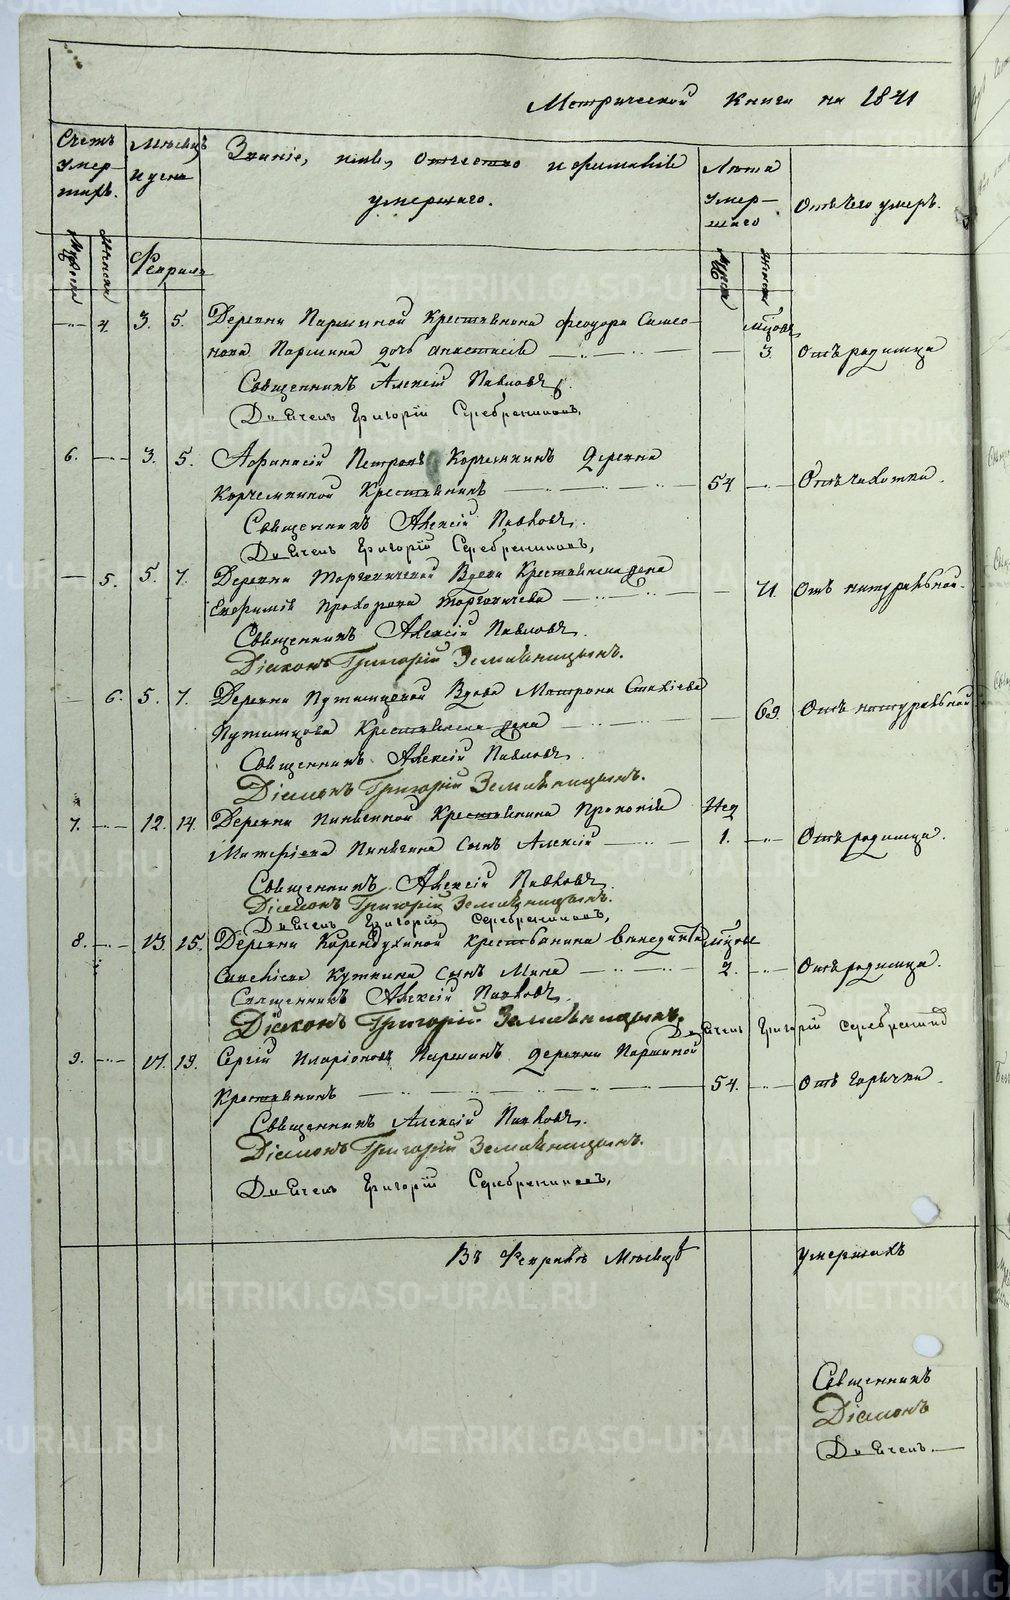 Метрической книги на 1841
Счетъ умер- шихъ.
Мѣсяцъ и день
Званіе, имя, отчество и фамилія умершаго.
Лѣта умер- шаго
Отъ чего умеръ.
Мужеска Женска
Февраль
Муж Женска
4. 3. 5. Деревни Паршиной Крестьянина Феодора Симео- мѣсяц
нова Паршина дочь Анастасія 3. Отъ родимца
Священникъ Алексій Павловъ.
Дьячекъ Григорій Серебрениковъ,
6. 3. 5. Афанасій Петровъ Корчемкинъ Деревни
Корчемкиной Крестьянинъ 54 Отъ чахотки.
Священникъ Алексій Павловъ.
Дьячекъ Григорій Серебрениковъ,
5. 5. 7. Деревни Вдова Крестьянска жена
Евфимія Прохорова 71. Отъ натуральной.
Священникъ Алексій Павловъ.
Діаконъ Григорій Земляницынъ.
6. 5. 7. Деревни Путимцевой Вдова Матрона Стахіева
Путимцова Крестьянска жена 69. Отъ натуральной
Священникъ Алексій Павловъ.
Діаконъ Григорій Земляницынъ.
7. 12. 14. Деревни Пинягиной Крестьянина Прокопія Нед
Матфіева Пинягина сынъ Алексій 1. Отъ родимца.
Священникъ Алексій Павловъ.
Діаконъ Григорій Земляницынъ.
Дьячекъ Григорій Серебрениковъ,
8. 13. 15. Деревни крестьянина Венедикта мѣсяц
Савеліева сынъ 2. Отъ родимца.
Священникъ Алексій Павловъ.
Діаконъ Григорій Земляницынъ.
Дьячекъ Григорій Серебрениковъ
9. 17. 19. Сергій Иларіоновъ Паршинъ деревни Паршиной
Крестьянинъ 54. Отъ горячки.
Священникъ Алексій Павловъ.
Діаконъ Григорій Земляницынъ.
Дьячекъ Григорій Серебрениковъ,
Въ Февралѣ Мѣсяцѣ умершихъ
Священникъ
Діаконъ
Дьячекъ
METRIKI.GASO-URAL.RU